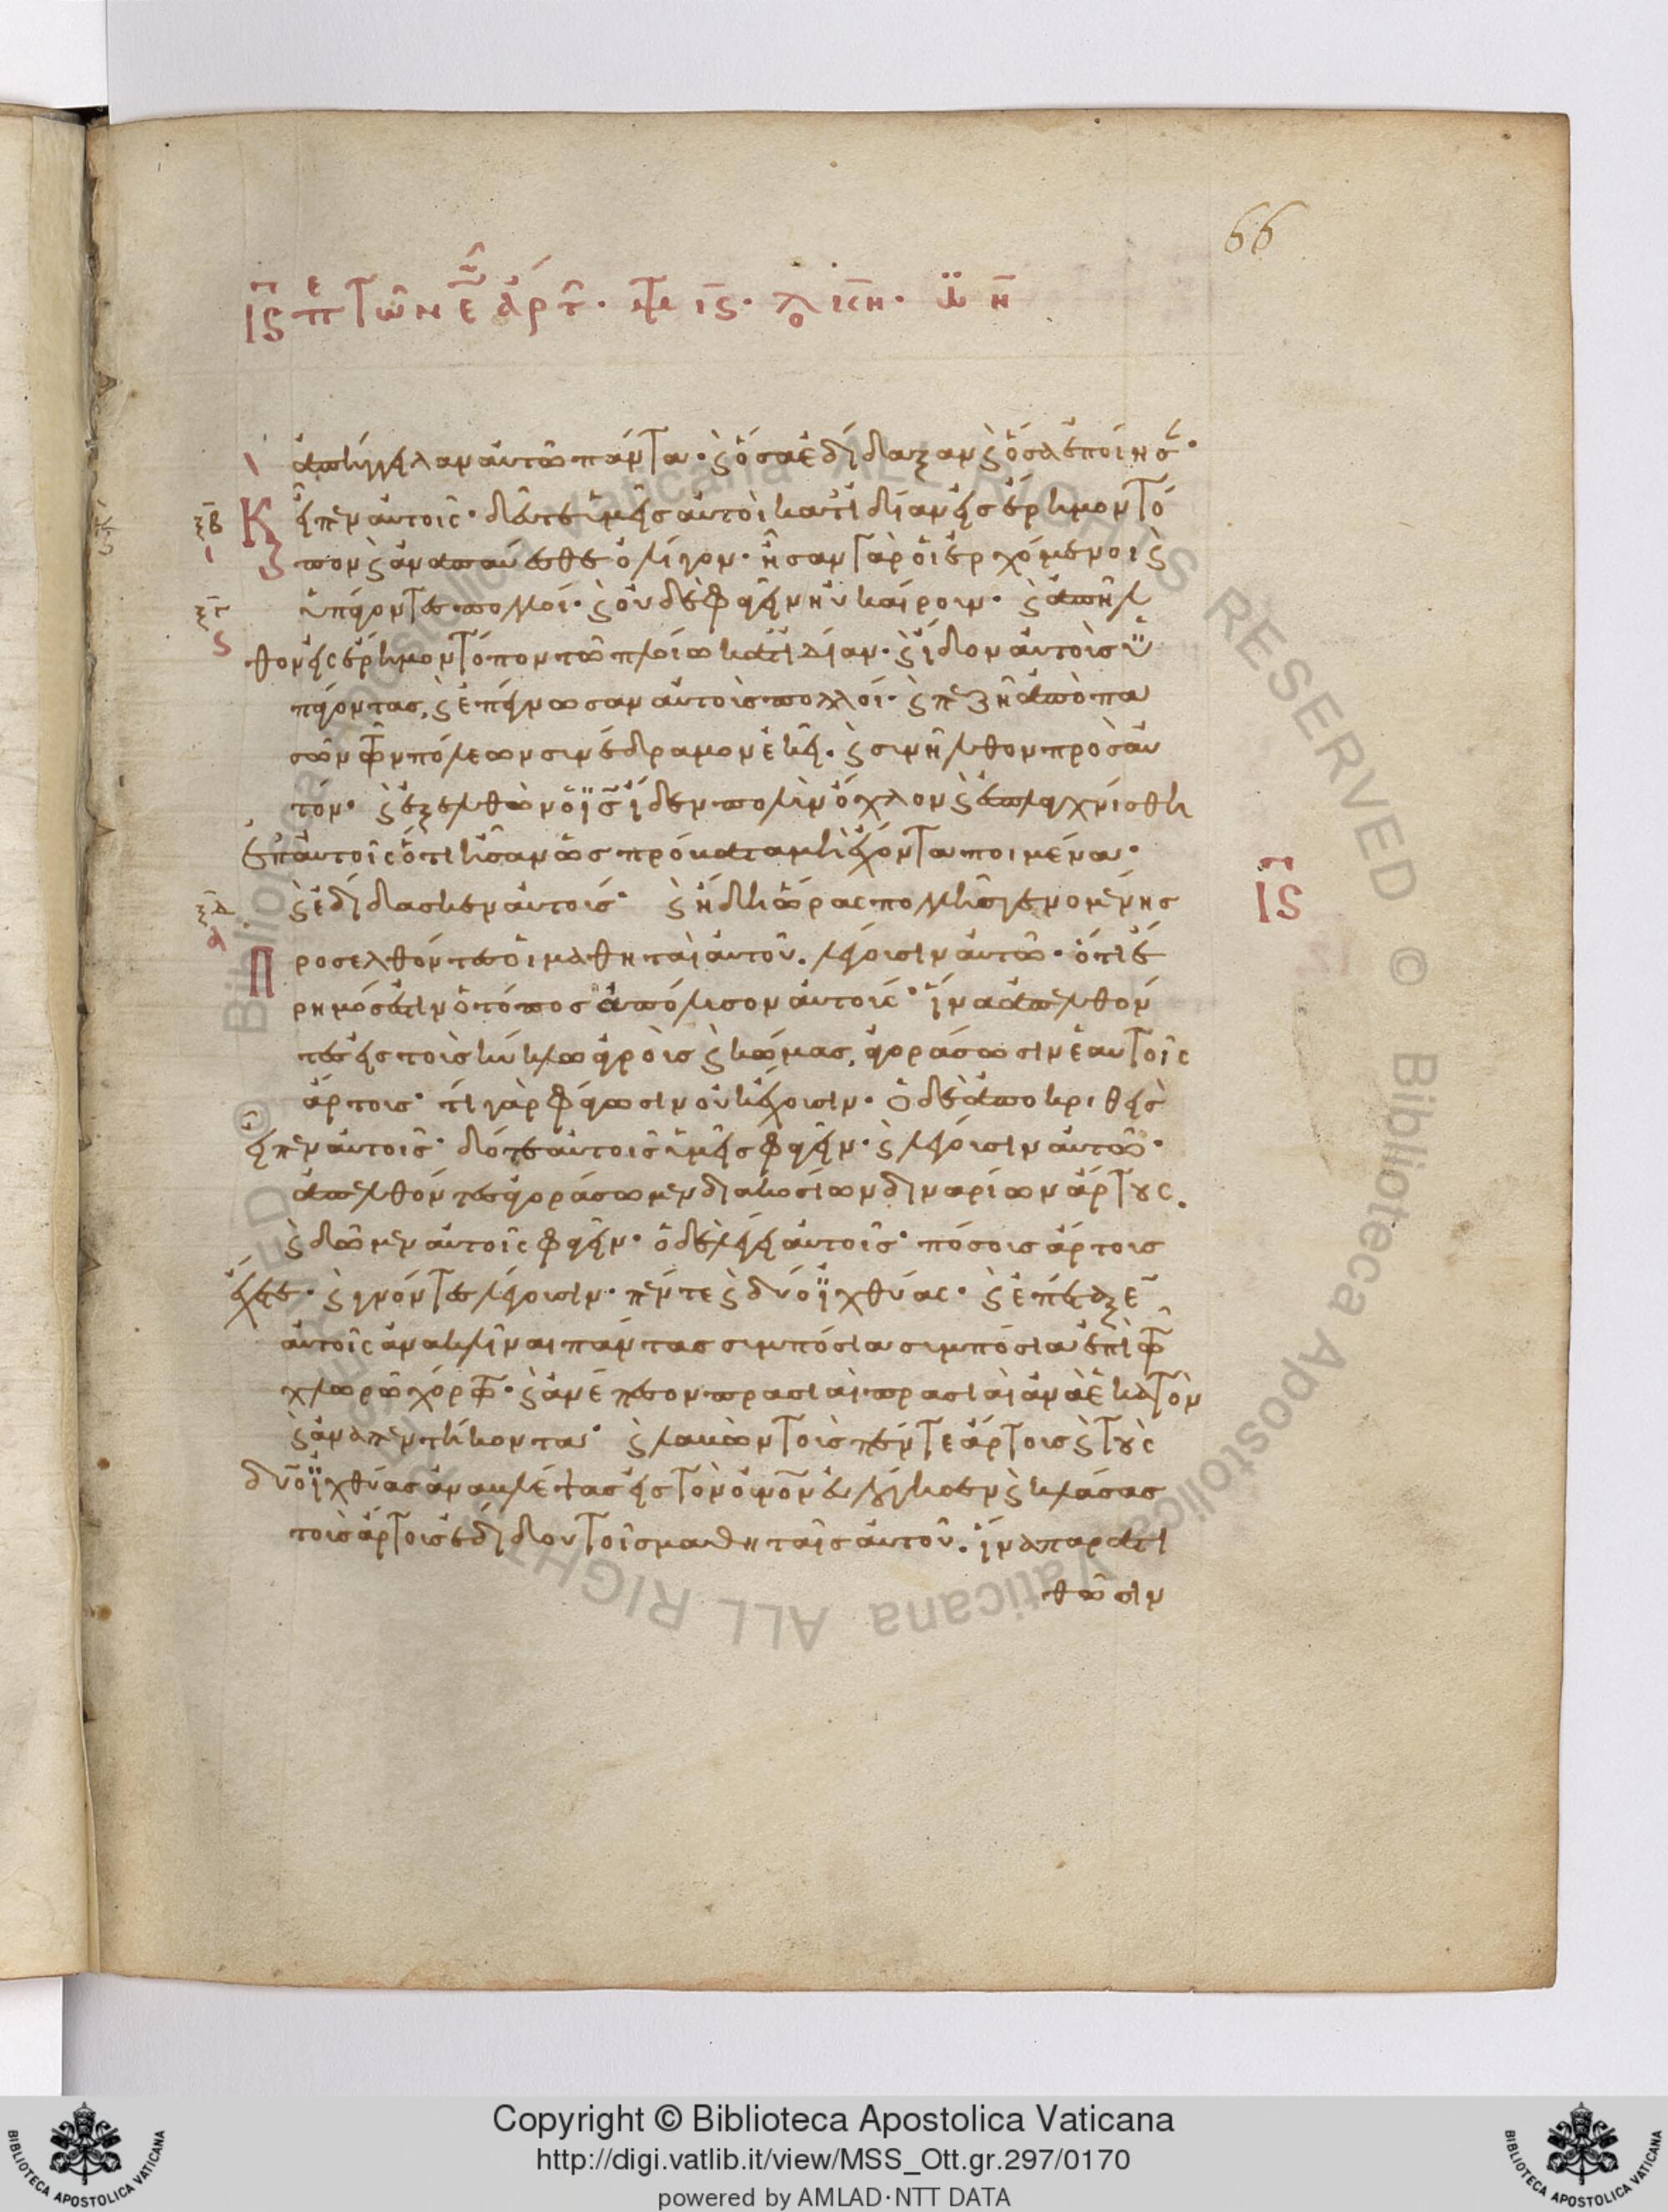 66
ιϛ πε τῶν ε ἄρτ· μτ ιϛ· λο κη· ιω η
ἀπήγγειλαν αὐτῶ πάντα· ϗ ὅσα ἐδίδαξαν ϗ ὅσα ἐποίησ·
ξβ
ι
Κ
ϛ εἶπεν αὐτοῖς· δεῦτε ὑμεῖς αὐτοὶ κατ ιδίαν εἰς ἔρημον τό
πον ϗ ἀναπαύεσθε ὀλίγον· ἦσαν γὰρ οἱ ἐρχόμενοι ϗ
ὑπάγοντες πολλοί· ϗ οὐδὲ φαγεῖν ηὐκαίρουν· ϗ ἀπῆλ
ξγ
ϛ
θον εἰς ἔρημον τόπον τῶ πλοίω κατιδίαν· ϗ εἶδον αὐτοὺς ὑ
πάγοντας, ϗ ἐπέγνωσαν αὐτοὺς πολλοί· ϗ πεζῆ ἀπὸ πα
σῶν τῶν πόλεων συνέδραμον ἐκεῖ· ϗ συνῆλθον πρὸς αὐ
τόν· ϗ ἐξελθὼν ὁ ϊς εἶδεν πολὺν ὄχλον ϗ ἐσπλαγχνίσθη
ἐπ αὐτοῖς ὅτι ἦσαν ὡς πρόβατα μὴ ἔχοντα ποιμένα·
ϗ ἐδίδασκεν αὐτούς· ϗ ἤδη ὥρας πολλῆς γενομένης
ιϛ
ξδ
α
Προσελθόντες οἱ μαθηταὶ αὐτοῦ· λέγουσιν αὐτῶ· ὅτι ἔ
ρημός ἐστιν ὁ τόπος ἀπόλυσον αὐτούς· ἵνα ἀπελθόν
τες εἰς τοὺς κύκλω ἀγροὺς ϗ κώμας, ἀγοράσωσιν ἑαυτοῖς
ἄρτους· τί γὰρ φάγωσιν οὐκ ἔχουσιν· ὁ δὲ ἀποκριθεὶς
εἶπεν αὐτοῖς· δότε αὐτοῖς ὑμεῖς φαγεῖν· ϗ λέγουσιν αὐτῶ·
ἀπελθόντες ἀγοράσωμεν διακοσίων δηναρίων ἄρτους.
ϗ δῶμεν αὐτοῖς φαγεῖν· ὁ δὲ λέγει αὐτοῖς· πόσους ἄρτους
ἔχετε· ϗ γνόντες λέγουσιν· πέντε ϗ δύο ϊχθύας· ϗ ἐπέταξε
αὐτοῖς ἀνακλῖναι πάντας συμπόσια συμπόσια ἐπὶ τῶ
χλωρῶ χόρτω· ϗ ἀνέπεσον πρασιαὶ πρασιαὶ ἀνὰ ἑκατὸν
ϗ ἀνὰ πεντήκοντα· ϗ λαβὼν τοὺς πέντε ἄρτους ϗ τοὺς
δύο ϊχθύας ἀναβλέψας εἰς τὸν οὐρανὸν εὐλόγησεν ϗ κλάσας
τοὺς ἄρτους ἐδίδου τοῖς μαθηταῖς αὐτοῦ· ἵνα παρατι
θῶσιν
Copyright © Biblioteca Apostolica Vaticana
http://digi.vatlib.it/view/MSS_Ott.gr.297/0170
powered by AMLAD·NTT DATA
BIBLIOTECA APOSTOLICA VATICANA
BIBLIOTECA APOSTOLICA VATICANA
© Biblioteca Apostolica Vaticana ALL RIGHTS RESERVED © Biblioteca Apostolica Vaticana ALL RIGHTS RESERVED